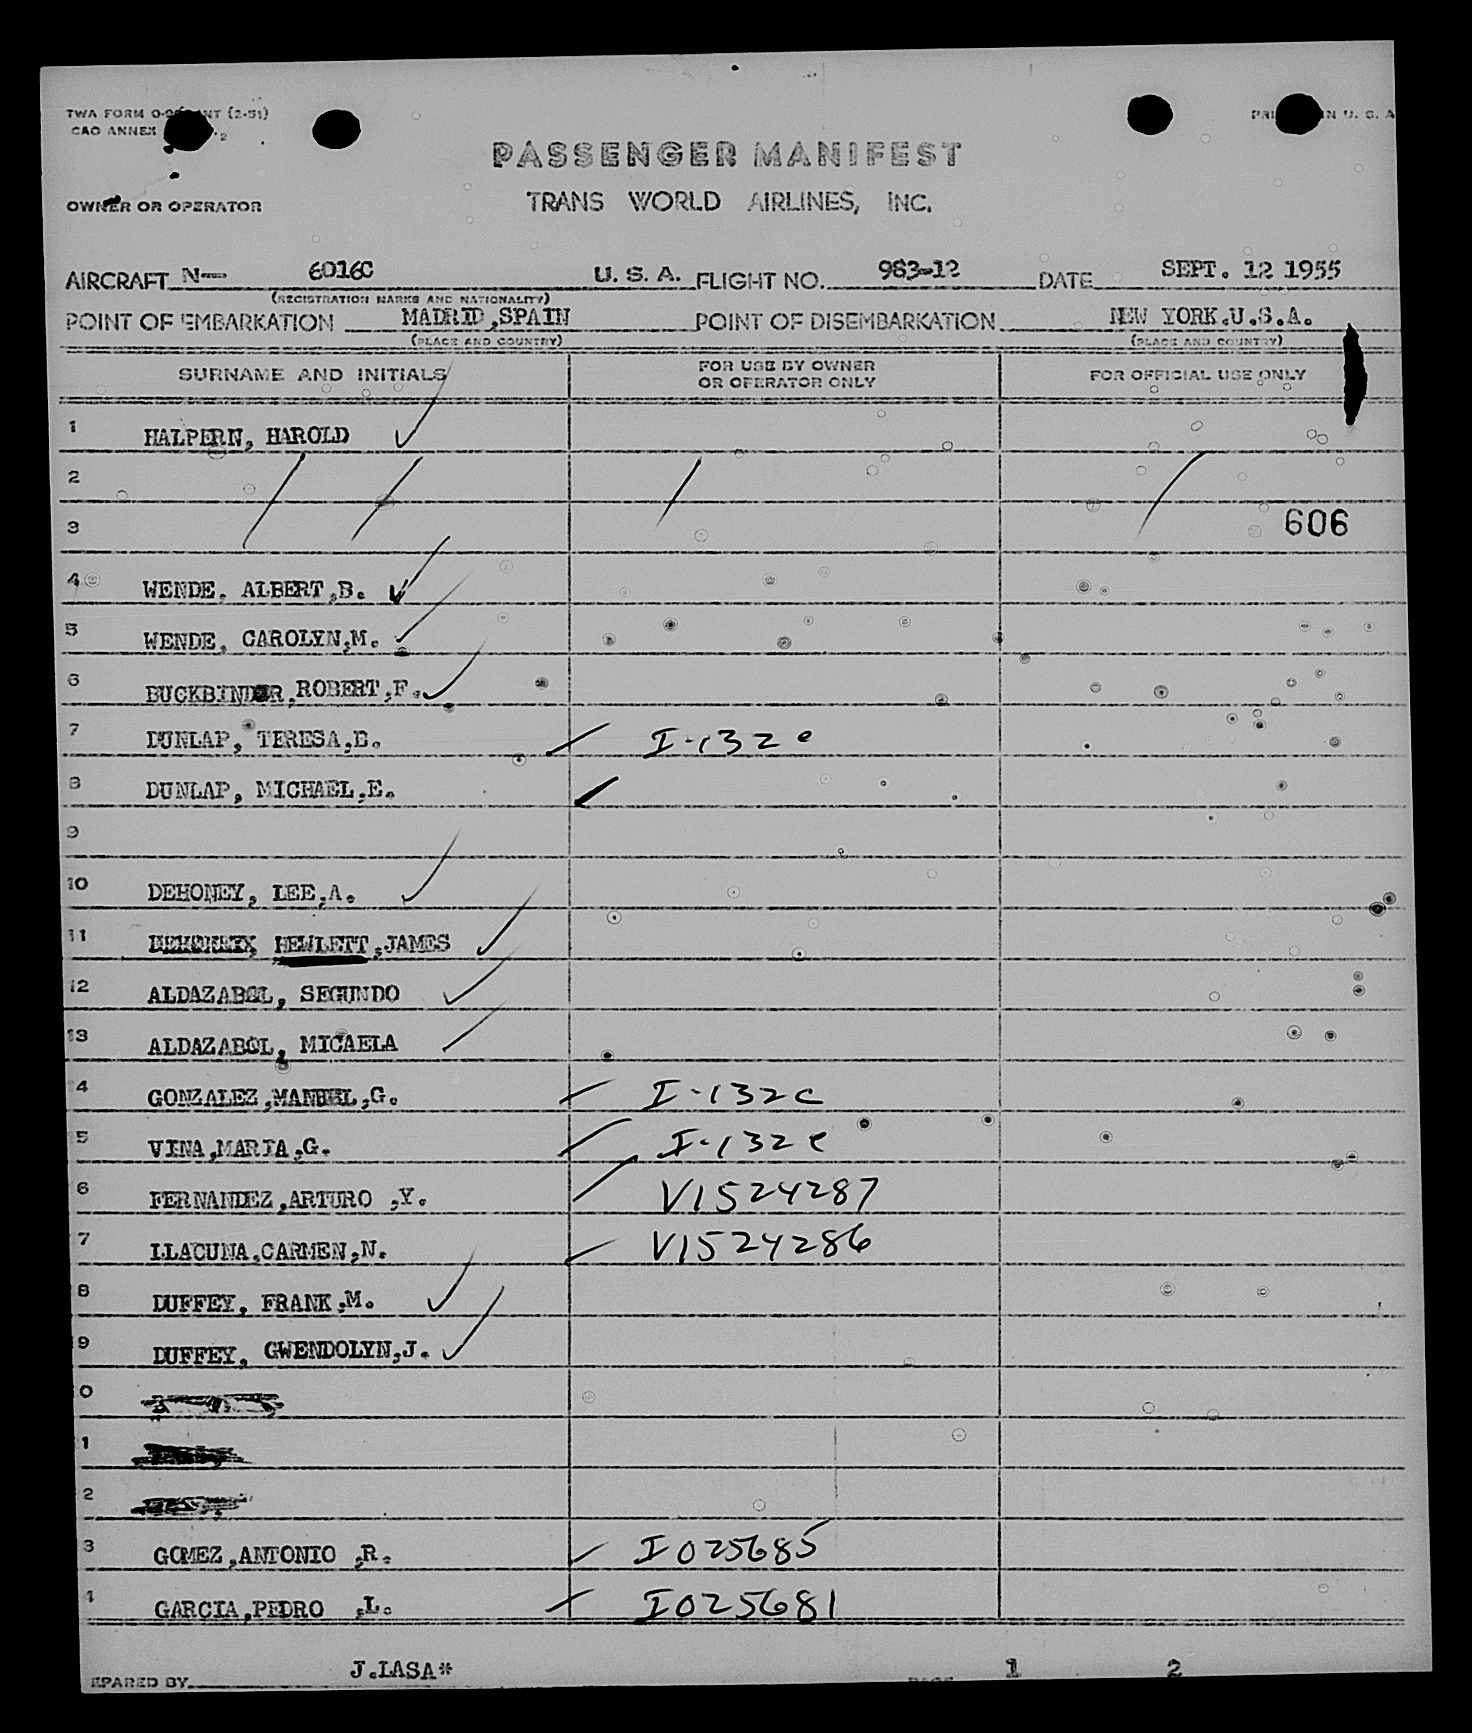 TWA FORM
CAO ANNEX
PASSENGER MANIFEST
OWNER OR OPERATOR
TRANS WORLD AIRLINES, INC.
AIRCRAFT N— 6016C U. S. A. FLIGHT NO. 983-12 DATE SEPT. 12 1955
(REGISTRATION MARKS AND NATIONALITY)
POINT OF EMBARKATION MADRID,SPAIN POINT OF DISEMBARKATION NEW YORK.U.S.A.
(PLACE AND COUNTRY) (PLACE AND COUNTRY)
SURNAME AND INITIALS FOR USE BY OWNER OR OPERATOR ONLY FOR OFFICIAL USE ONLY
1 HALPERN, HAROLD
2
3 606
4 WENDE, ALBERT,B.
5 WENDE, CAROLYN,M.
6 BUCKBINDER,ROBERT,F.
7 DUNLAP, TERESA,E. I-132e
8 DUNLAP, MICHAEL,E.
9
10 DEHONEY, LEE,A.
11 HEWLETT,JAMES
12 ALDAZABOL, SEGUNDO
13 ALDAZABOL, MICAELA
4 GONZALEZ,MANUEL,G. I-132c
5 VINA,MARIA,G. I-132e
6 FERNANDEZ,ARTURO ,Y. V1524287
7 LLACUNA,CARMEN,N. V1524286
8 DUFFEY, FRANK,M.
9 DUFFEY, GWENDOLYN,J.
0
1
2
3 GOMEZ,ANTONIO ,R. I025685
4 GARCIA,PEDRO ,L. I025681
EPARED BY J.LASA* 1 2